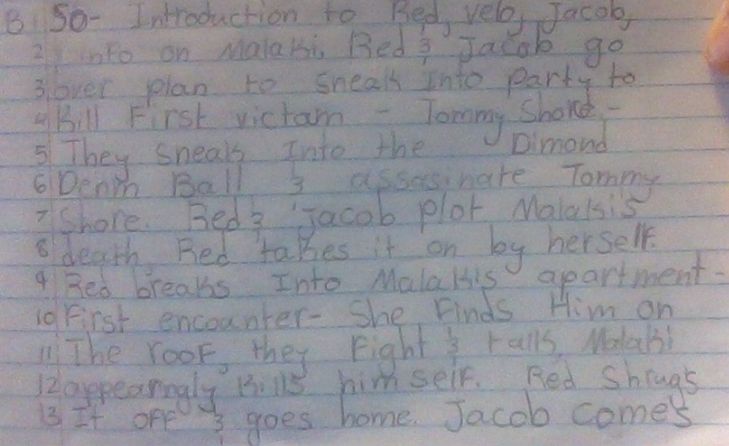 B 50- Introduction to Red, velo, Jacob,
2 info on Malaki. Red & Jacob go
3 over plan to sneak Into party to
4 Kill First victam - Tommy Shore -
5 They sneak Into the Dimond
6 Denim Ball & assasinate Tommy
7 Shore. Red & Jacob plot Malaki's
8 death. Red takes it on by herself.
9 Red breaks Into Malakis apartment -
10 First encounter - She Finds Him on
11 The roof, they Fight & Malaki
12 appearingly Kills himself. Red Shrugs
13 It OFF & goes home. Jacob comes